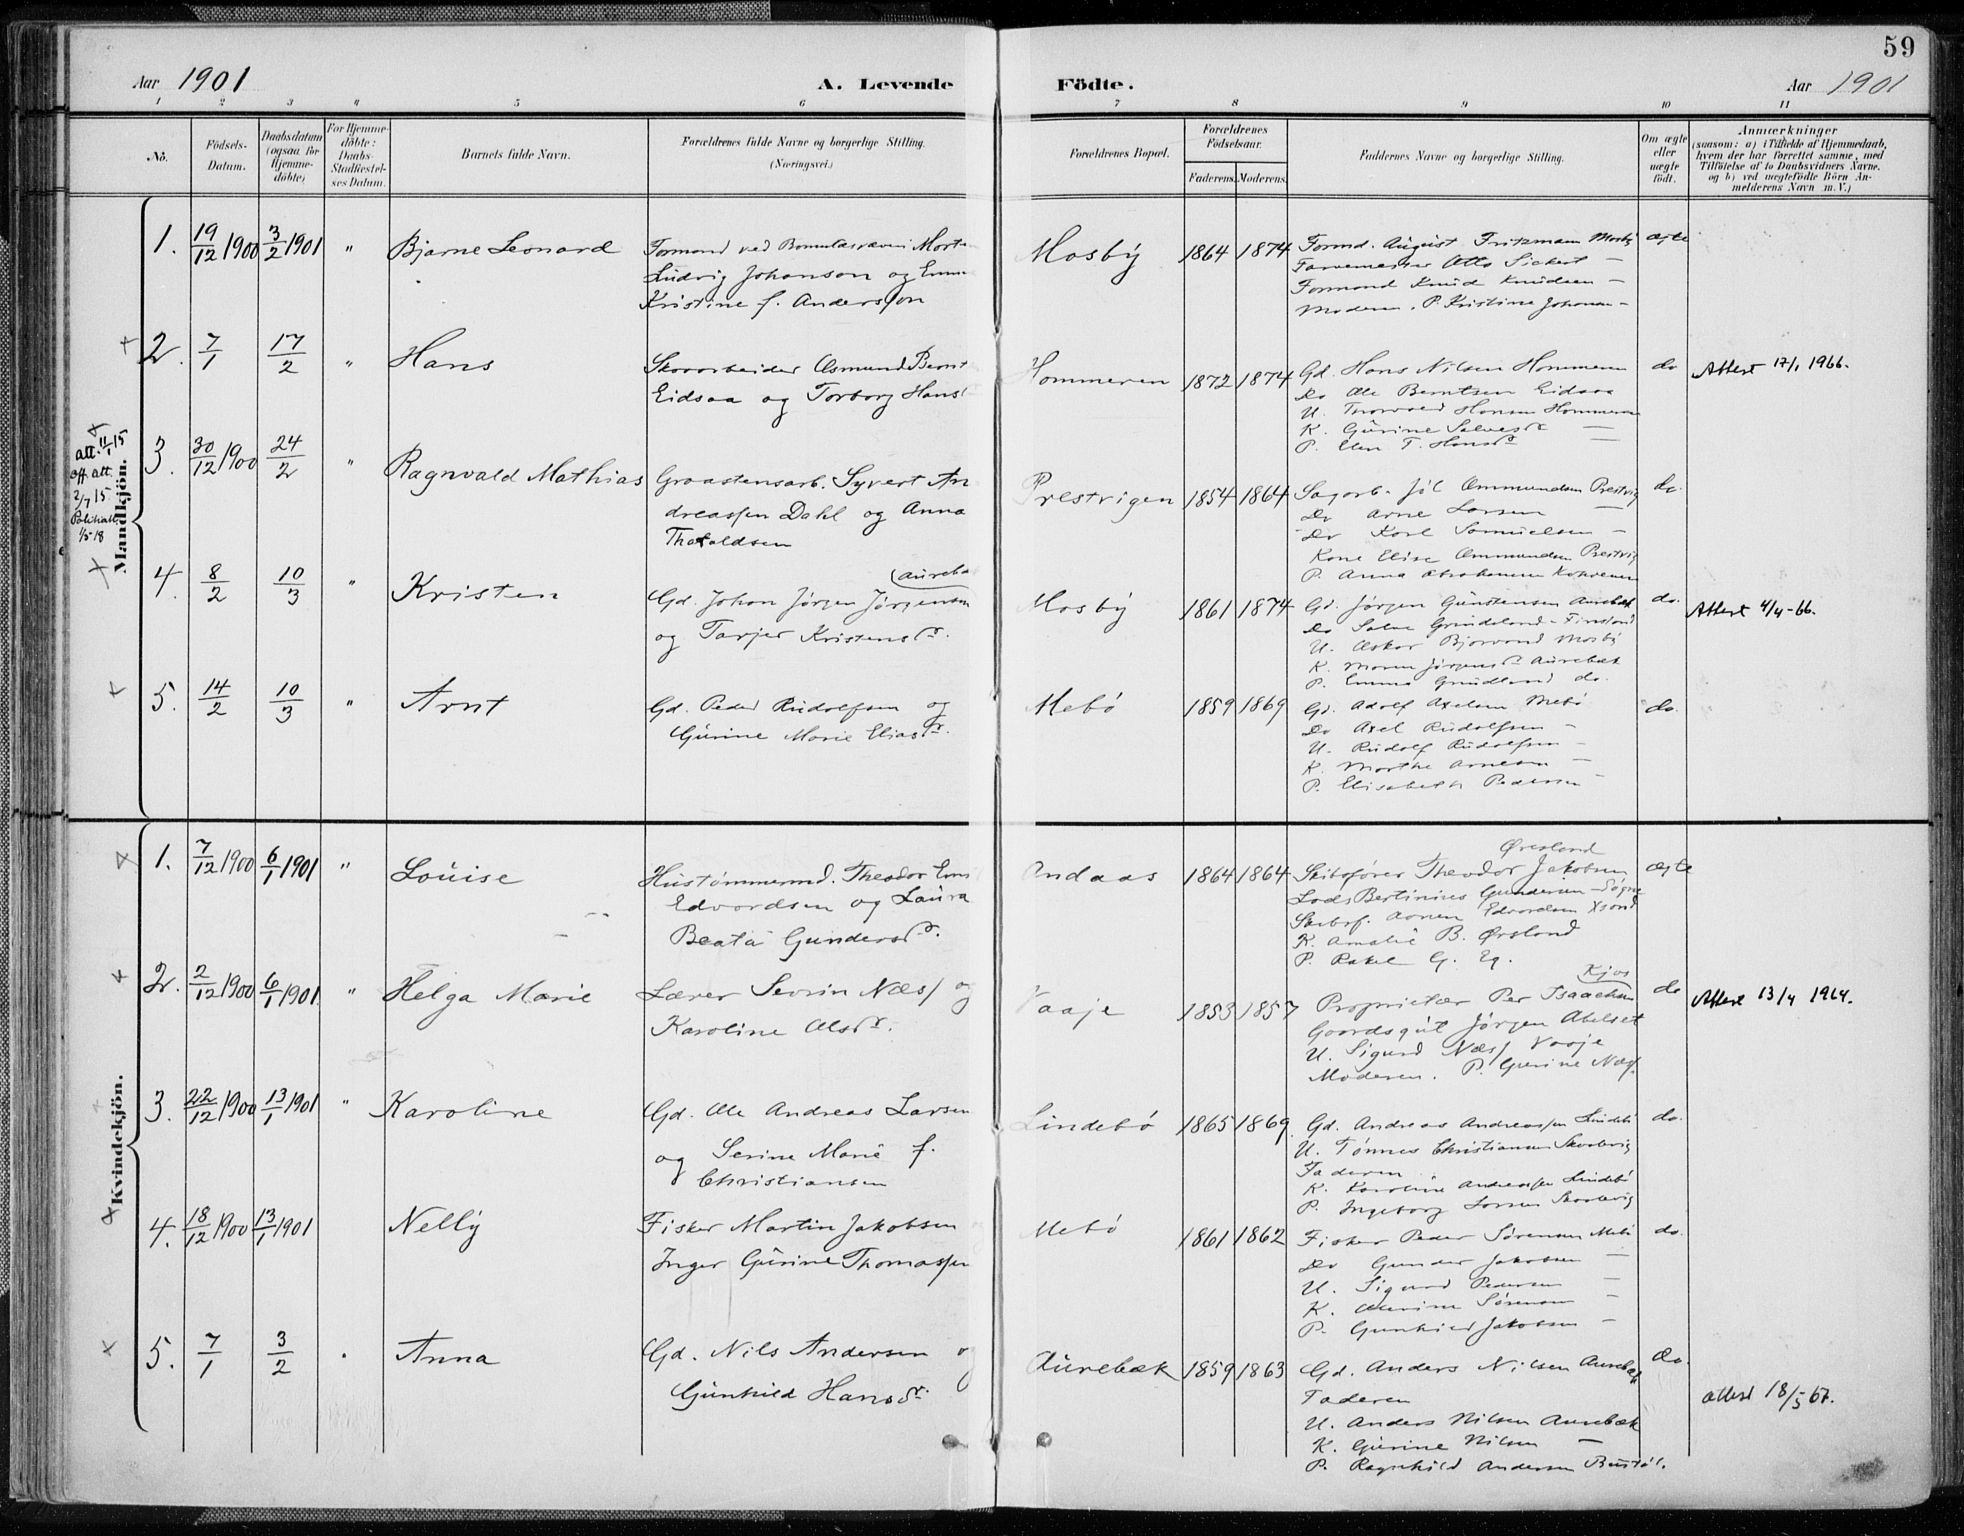 59
Aar 1901
A. Levende Födte.
Aar 1901
1 2 3 4 5 6 7 8 9 10 11
No.
Födsels-Datum.
Daabsdatum (ogsaa for Hjemme-döbte)
For Hjemme-döbte: Daabs-Stadfæstel-ses Datum.
Barnets fulde Navn.
Forældrenes fulde Navne og borgerlige Stilling. (Næringsvei.)
Forældrenes Bopæl.
Forældrenes Födselsaar.
Faderens. Moderens.
Faddernes Navne og borgerlige Stilling.
Om ægte eller uægte födt.
Anmærkninger
(saasom: a) i Tilfælde af Hjemmedaab, hvem der har forrettet samme, med Tilföielse af to Daabsvidners Navne, og b) ved uægtefödte Börn An-melderens Navn m. V.)
Mandkjön.
1. 19/12 1900 3/2 1901 " Bjarne Leonard
Formand ved Morten
Ludvig Johanson og
Kristine f. Andersson
Mosby 1864 1874
Formd. August Fritzmann Mosby
Farvemester Otto Sickert —
Formand Knud Knudsen —
Moderen. P. Kristine Johansen —
ægte
2. 7/1 17/2 " Hans
Skovarbeider Osmund Bernt
Eidsaa og Torborg Hans
Hommeren 1872 1874
Gd. Hans Nilsen Hommeren
Do Ole Berntsen Eidsaa
U. Torvald Hansen Hommeren
K. Gurine Salvesdr —
P. Elen T. Hansdr —
do
Attest 17/1 1966.
att. 11/1 15
off. att.
2/7 15
Politiatt.
1/5 18
3. 30/12 1900 24/2 " Ragnvald Mathias
Graastensarb. Syvert An
dreassen Dahl og Anna
Tharaldsen
Prestvigen 1854 1864
Sagarb. Jöl Ommundsen Prestvig
Do Arne Larsen —
Do Karl Samuelsen —
Kone Elise Ommundsen Prestvig
P. Anna Abrahamsen
do.
4. 8/2 10/3 " Kristen
Aureba
Gd. Johan Jörgen Jörgensen
og Tarjer Kristensdr.
Mosby 1861 1874
Gd. Jörgen Gunstensen Aurebæk
Do Salve Grundeland - Finsland
U. Oskar Bjorvand Mosby
K. Maren Jörgensdr Aurebæk
P. Emma Grundland do.
do.
Attest 4/4 - 66.
5. 14/2 10/3 " Arnt
Gd. Peder Rudolfsen og
Gurine Marie Eliasdr.
Mebö 1859 1869
Gd. Adolf Axelsen Mebö
Do Axel Rudolfsen —
U. Rudolf Rudolfsen —
K. Marthe Arnesen —
P. Elisabeth Pedersen —
do.
Kvindekjön.
1. 7/12 1900 6/1 1901 " Louise
Hustömmermd. Theodor
Edvardsen og Laura
Beata Gundersdr.
Andaas 1864 1864
Öresland
Skibsförer Theodor Jakobsen
Lods Bertinius Gundersen - Sögne
Skibsf. Edvardsen Xsand
K. Amalie B. Örsland
P. Rakel G. Eg.
ægte
2. 2/12 1900 6/1 1901 " Helga Marie
Lærer Sevrin Næss og
Karoline Olsdr.
Vaaje 1853 1857
Kjos
Proprietær Per Isaachsen
Gaardsgut Jörgen Abelset
U. Sigurd Næss Vaaje
Moderen. P. Gurine Næss.
do
Attest 13/4 1964.
3. 22/12 1900 13/1 1901 " Karoline
Gd. Ole Andreas Larsen
og Serine Marie f.
Christiansen
Lindebö 1865 1869
Gd. Andreas Andreassen Lindebö
U. Tönnes Christiansen Skarkevig
Faderen
K. Karoline Andreassen Lindebö
P. Ingeborg Larsen
do.
4. 18/12 1900 13/1 1901 Nelly
Fisker Martin Jakobsen
Inger Gurine Thomassen
Mebö 1861 1862
Fisker Peder Sörensen Mebö
Do Gunder Jakobsen —
U. Sigurd Pedersen —
K. Sörensen —
P. Gunhild Jakobsen —
do.
5. 7/1 3/2 Anna
Gd. Nils Andersen o
Gunhild Hansdr.
Aurebæk 1859 1863
Gd. Anders Nilsen Aurebæk
Faderen
U. Anders Nilsen Aurebæk
K. Gurine Nilsen —
P. Ragnhild Andersen
do.
attest 18/5 67.